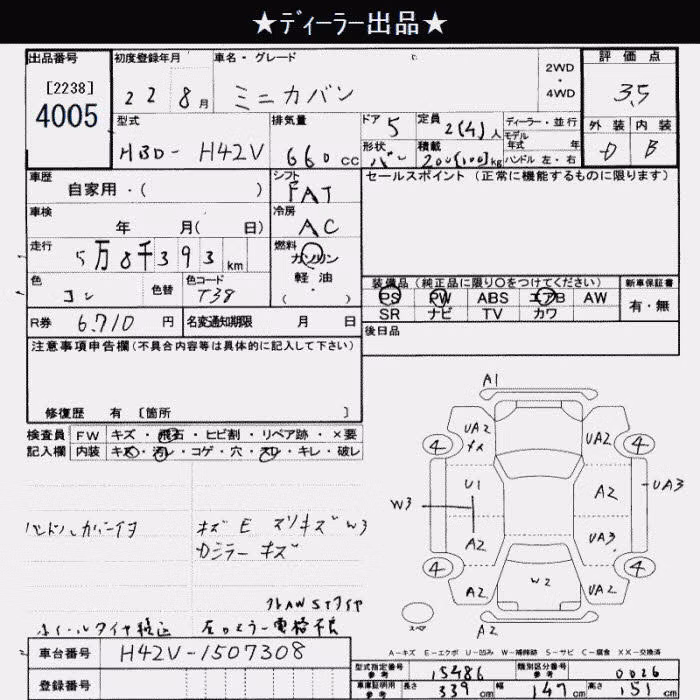 ★ディーラー出品★
出品番号
[2238]
4005
初度登録年月
22年 8月
車名・グレード
ミニカバン
2WD
・
4WD
評価点
3.5
型式
HBD- H42V
排気量
660 cc
ドア 5
定員 2(4)人
形状 バン
積載 200(100)kg
ディーラー・並行
モデル
年式 年
ハンドル 左・右
外装 内装
D B
車歴
自家用・( )
シフト
FAT
セールスポイント (正常に機能するものに限ります)
車検
年 月( 日)
冷房
AC
走行
5万8千393km
燃料
ガソリン
軽油
・
( )
色
コン
色替
色コード
T38
装備品 (純正品に限り〇をつけてください)
PS PW ABS エアB AW
SR ナビ TV カワ
新車保証書
有・無
R券 6,710円
名変通知期限 月 日
後日品
注意事項申告欄(不具合内容等は具体的に記入して下さい)
修復歴 有 〔箇所 〕
検査員 FW キズ・飛石・ヒビ割・リペア跡・×要
記入欄 内装 キズ・汚レ・コゲ・穴・スレ・キレ・破レ
ハンドルカバーイヨ
キズ E スリキズ W3
カジラー キズ
ホイールタイヤ
左ロミラー電格不良
A1
UA2 UA2
4 4
U1 A2
W3 UA3
A2 UA3
4 4
A2 W2 UA2
スペア
A2
A-キズ E-エクボ U-凹み W-補修跡 S-サビ C-腐食 XX-交換済
車台番号 H42V-1507308
登録番号
型式指定番号
参考 15486
類別区分番号
参考 0026
車庫証明用
参考 長さ 339 cm 幅 147 cm 高さ 151 cm